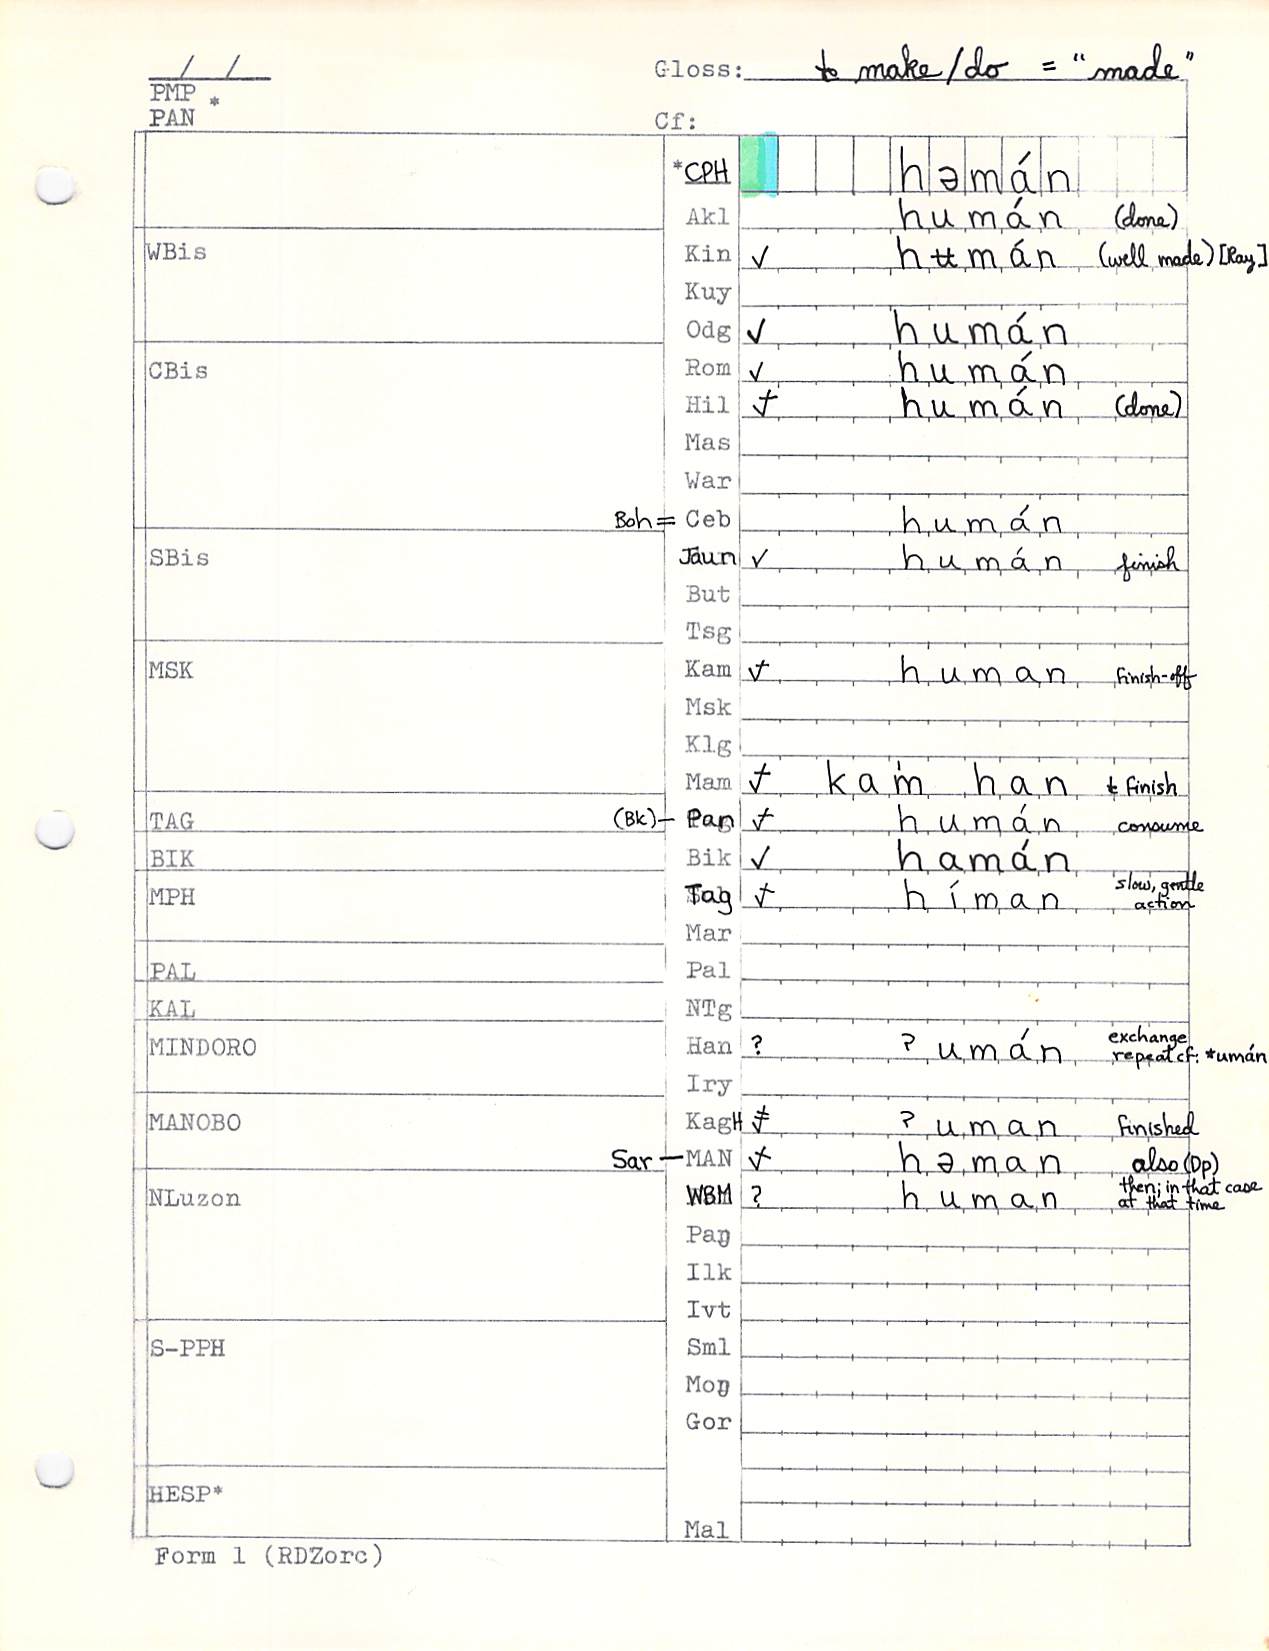 / /
Gloss: to make/do = "made"
PMP *
PAN
Cf:
*CPH həmán
Akl humán (done)
WBis
Kin ✓ hʉmán (well made) [Ray]
Kuy
Odg ✓ humán
CBis
Rom ✓ humán
Hil humán (done)
Mas
War
Boh = Ceb humán
SBis
Jaun ✓ humán finish
But
Tsg
MSK
Kam human finish-off
Msk
Klg
Mam kam han to finish
TAG
(Bk) – Pan humán consume
BIK
Bik ✓ hamán
MPH
Tag híman slow, gentle action
Mar
PAL
Pal
KAL
NTg
MINDORO
Han ? ʔumán exchange
repeat cf: *umán
Iry
MANOBO
KagH ʔuman finished
Sar — MAN həman also (Dp)
NLuzon
WBM ? human then; in that case
at that time
Paŋ
Ilk
Ivt
S-PPH
Sml
Moŋ
Gor
HESP*
Mal
Form 1 (RDZorc)